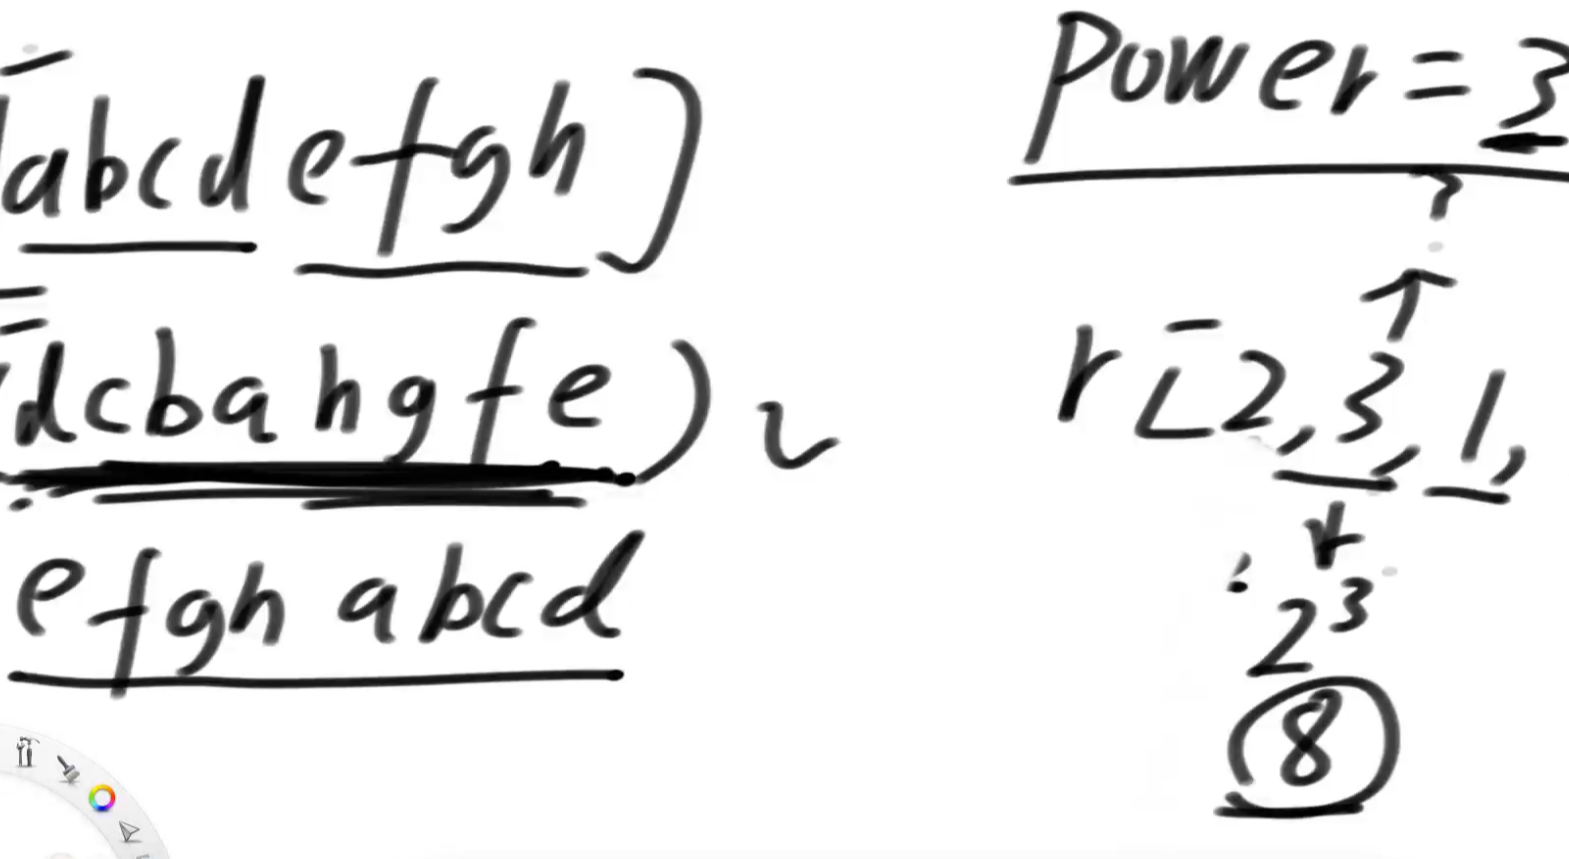 abcd efgh ]
dcba hgfe )
efgh abcd
power = 3
r[2,3,1,
2³
8